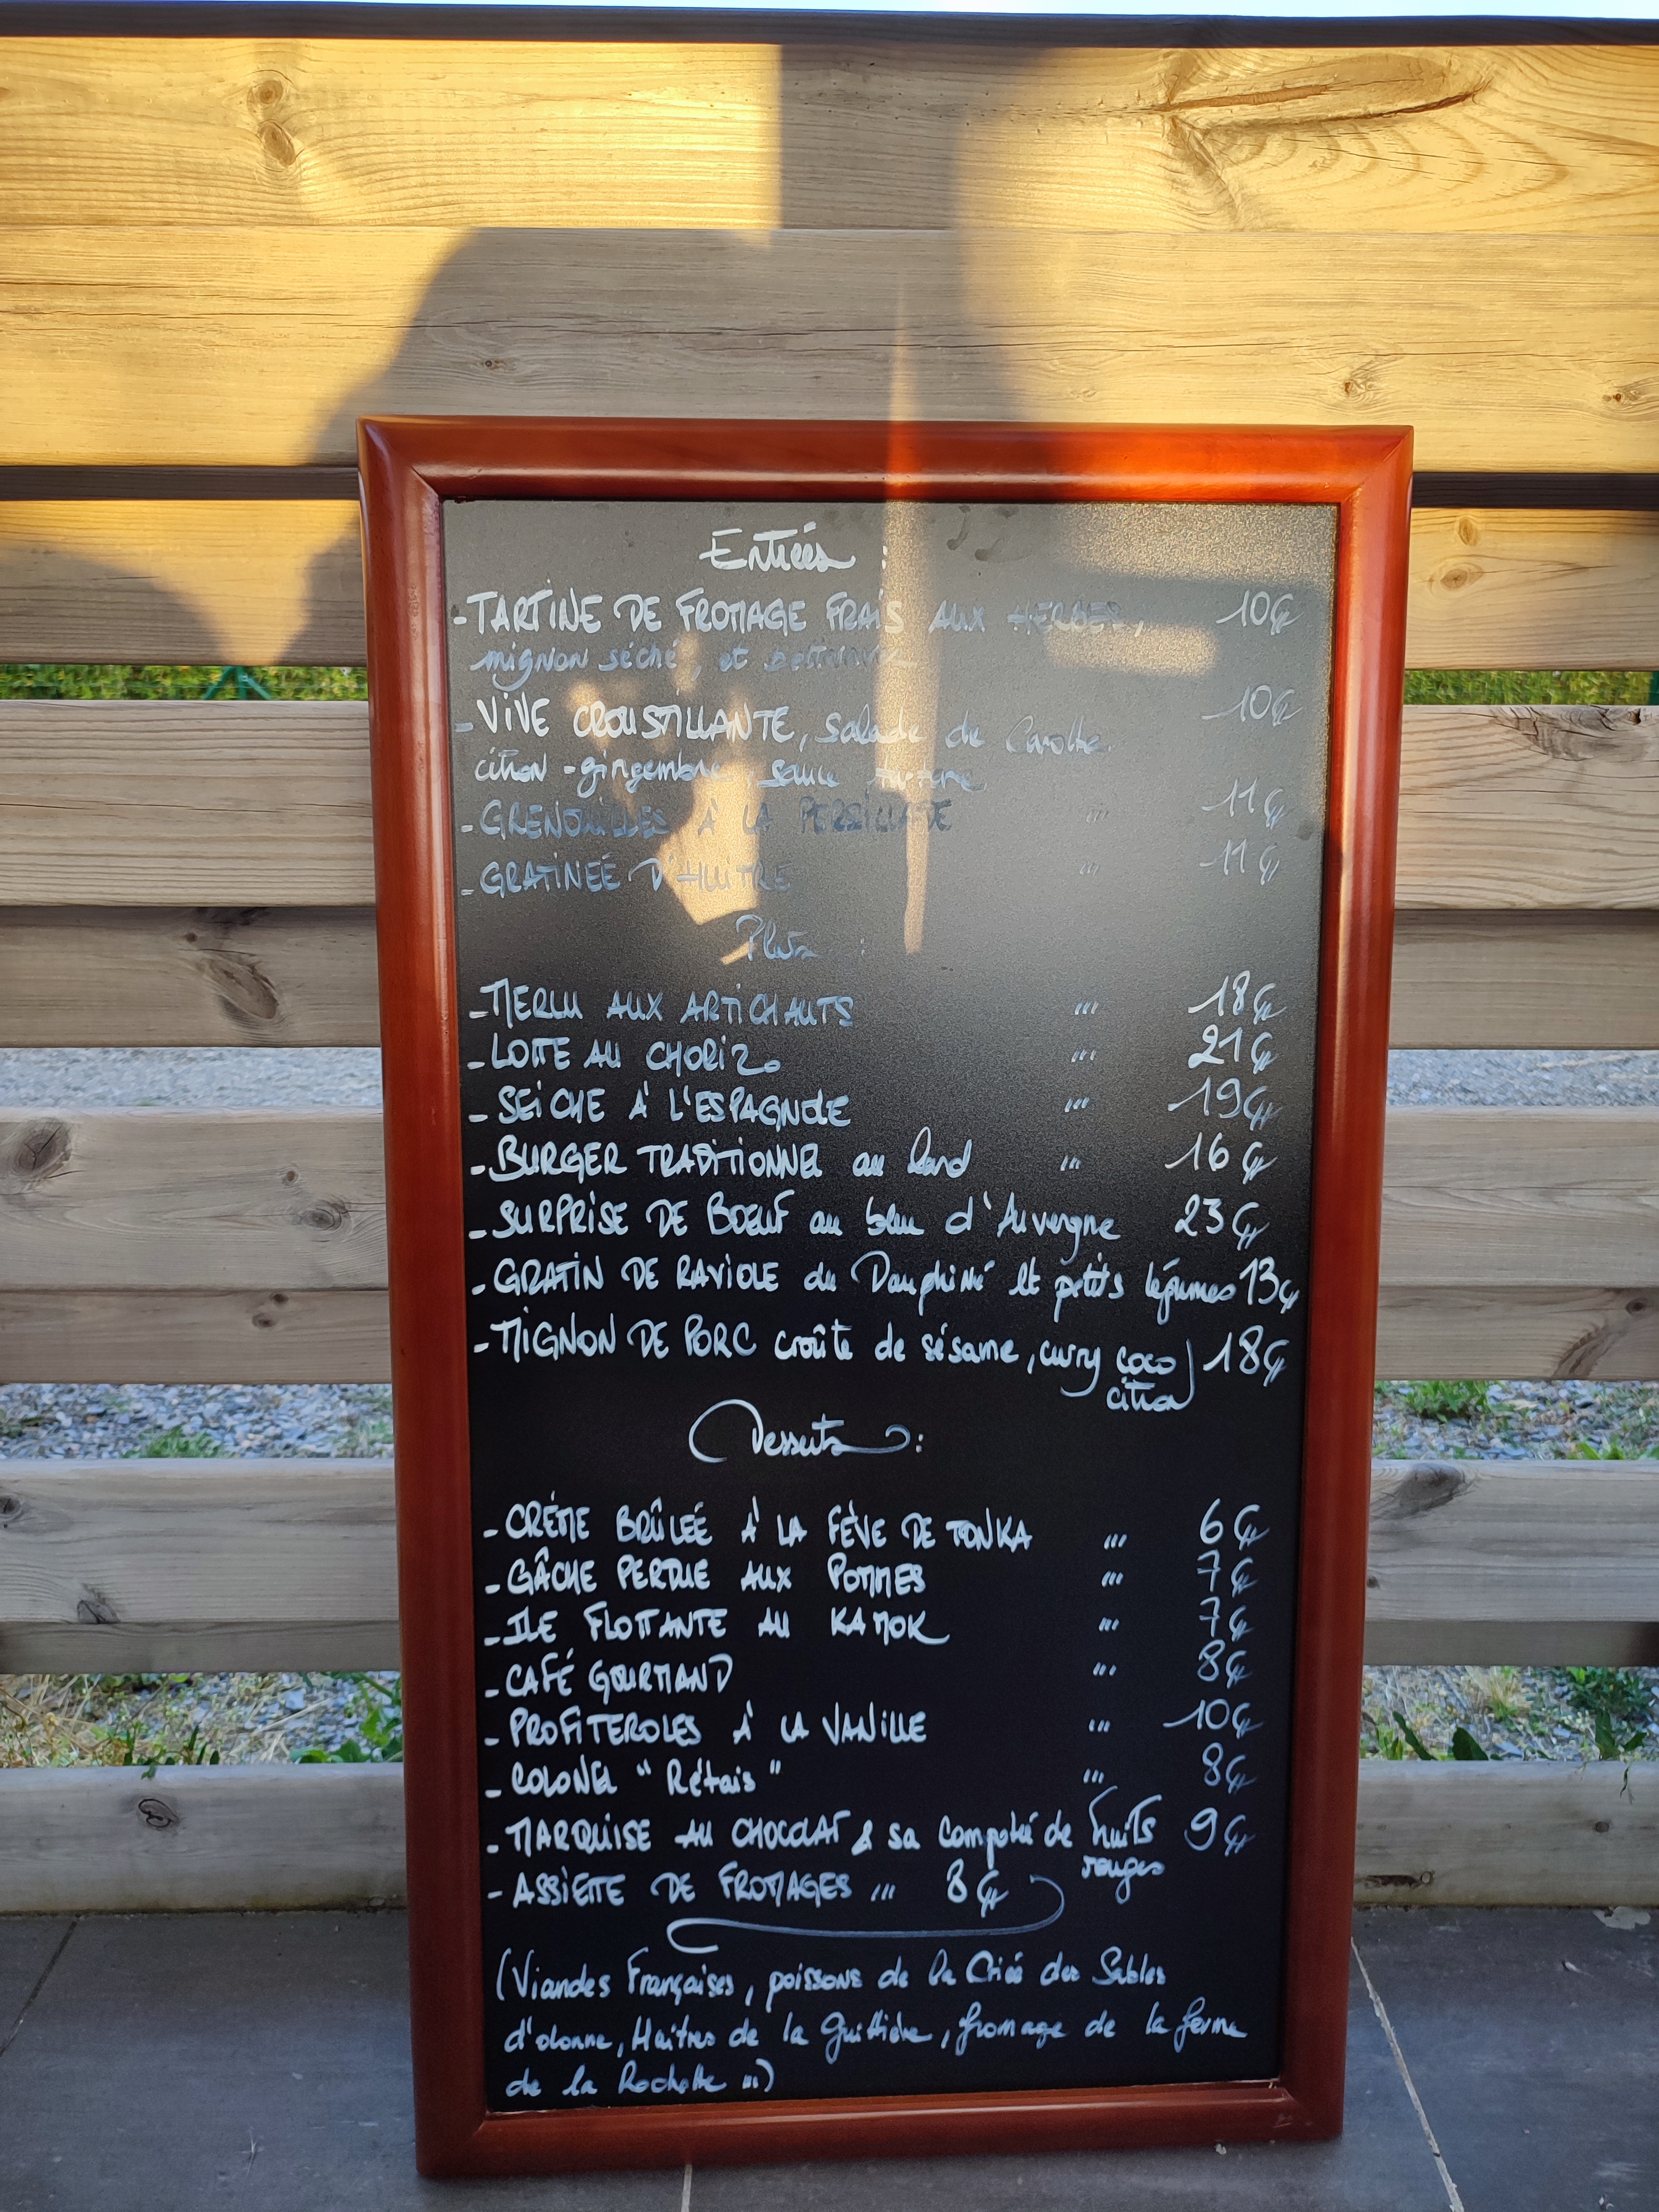 Entrées :
- TARTINE DE FROMAGE FRAIS AUX HERBES, 10€
mignon séché, et
- VIVE CROUSTILLANTE, salade de Carotte 10€
citron - gingembre, sauce tartare
- GRENOUILLES À LA PERSILLADE ... 11€
- GRATINEÉ D'HUITRE ... 11€
Plats :
- MERLU AUX ARTICHAUTS ... 18€
- LOTTE AU CHORIZO ... 21€
- SEICHE À L'ESPAGNOLE ... 19€
- BURGER TRADITIONNEL au lard ... 16€
- SURPRISE DE BOEUF au bleu d'Auvergne 23€
- GRATIN DE RAVIOLE du Dauphiné et petits légumes 13€
- MIGNON DE PORC croûte de sésame, curry coco 18€
citron
Desserts :
- CRÉME BRÛLEÉ À LA FÈVE DE TONKA ... 6€
- GÂCHE PERDUE AUX POMMES ... 7€
- ILE FLOTTANTE AU KAMOK ... 7€
- CAFÉ GOURMAND ... 8€
- PROFITEROLES À LA VANILLE ... 10€
- COLONEL "Rétais" ... 8€
- MARQUISE AU CHOCOLAT & sa compoteé de fruits 9€
rouges
- ASSIETTE DE FROMAGES ... 8€
(Viandes Françaises, poissons de la Crieé des Sables
d'olonne, Huitres de la Guittière, fromage de la ferme
de la Rochette ...)